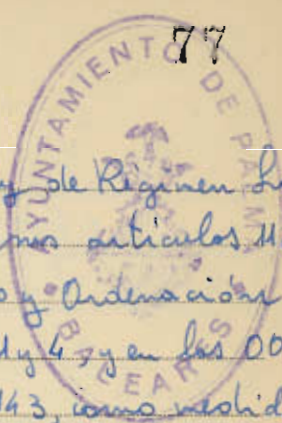 77
AYUNTAMIENTO DE PALMA
BALEARES
y de Régimen
artículos 11
y Ordenación
y 4, y en las OO
143, como medid